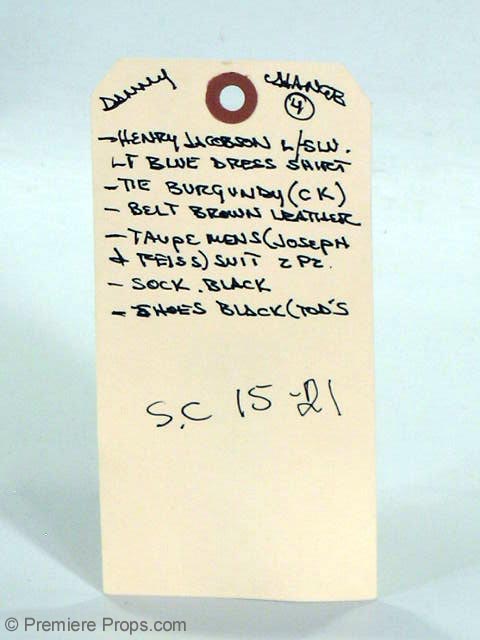 Danny CHANGE
4
-HENRY JACOBSON L/SLV.
LT BLUE DRESS SHIRT
-TIE BURGUNDY (CK)
- BELT BROWN LEATHER
- TAUPE MENS (JOSEPH
& FEISS) SUIT 2 PZ.
- SOCK . BLACK
- SHOES BLACK (TOD'S
S.C 15-21
© Premiere Props.com